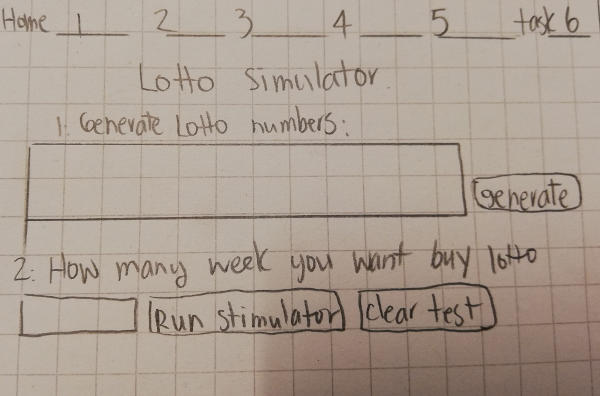 Home 1 2 3 4 5 task 6
Lotto Simulator.
1. Generate Lotto numbers:
generate
2. How many week you want buy lotto
Run stimulator clear test